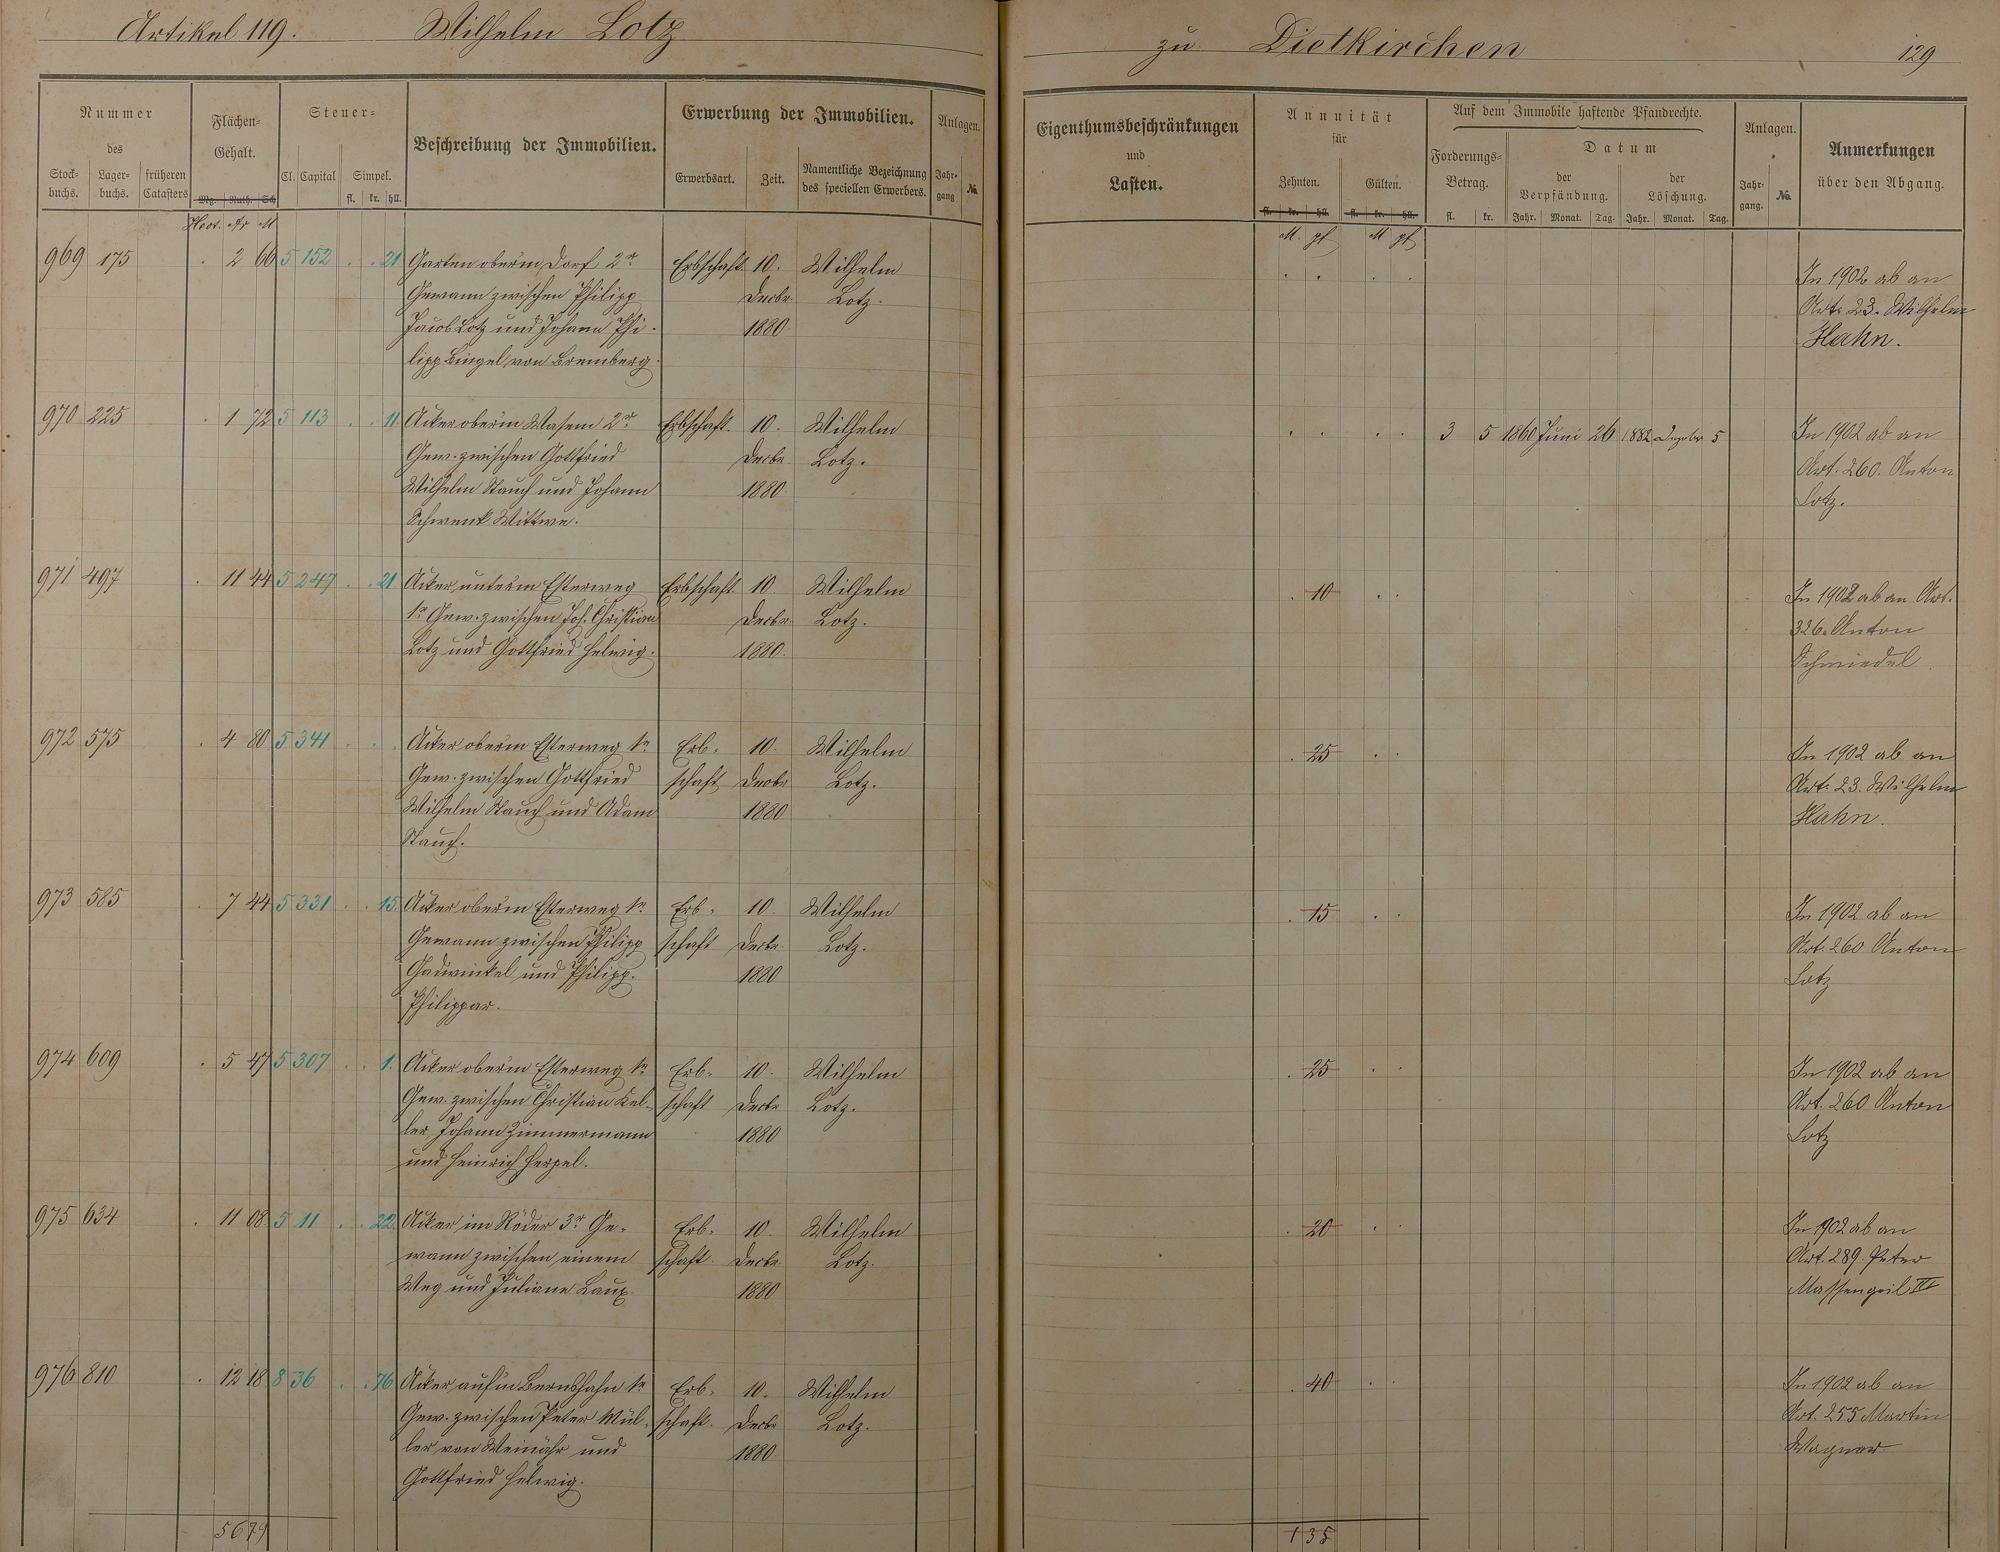 Artikel 119. Wilhelm Lotz zu Dietkirchen 129
Nummer
des
Stock-buchs. Lager-buchs. früheren Catasters
Flächen-Gehalt.
Mg. Ruth. Sch.
Hect. Ar M
Steuer-
Cl. Capital Simpel.
fl. kr. hll.
Beschreibung der Immobilien.
Erwerbung der Immobilien.
Erwerbsart. Zeit. Namentliche Bezeichnung des speciellen Erwerbers.
Anlagen.
Jahr-gang №
Eigenthumsbeschränkungen
und
Lasten.
Annuität
für
Zehnten. Gülten.
fl. kr. hll. fl. kr. hll.
M. pf M pf
Auf dem Immobile haftende Pfandrechte.
Forderungs-Betrag.
fl. kr.
Datum
der Verpfändung. der Löschung.
Jahr. Monat. Tag. Jahr. Monat. Tag.
Anlagen.
Jahr-gang. №
Anmerkungen
über den Abgang.
969 175 . 2 66 5 152 . . 21 Garten ober'm Dorf 2r Erbschaft 10. Wilhelm . . . . In 1902 ab an
Gewann zwischen Philipp Decbr. Lotz. Art. 23. Wilhelm
Jacob Lotz und Johann Phi- 1880. Hahn.
lipp Bingel von Bremberg.
970 225 . 1 72 5 113 . . 11 Acker ober'm Wasem 2r Erbschaft. 10. Wilhelm . . . . 3 5 1860 Juni 26 1882 Dezbr 5 In 1902 ab an
Gew. zwischen Gottfried Decbr. Lotz. Art. 260. Anton
Wilhelm Stauch und Johann 1880. Lotz.
Schwenk Wittwe.
971 497 . 11 44 5 247 . . 21 Acker unter'm Esterweg Erbschaft 10 Wilhelm . 10 . . In 1902 ab an Art.
1r Gew. zwischen Joh. Christian Decbr. Lotz. 326. Anton
Lotz und Gottfried Helwig. 1880. Schmiedel
972 575 . 4 80 5 341 . . . Acker ober'm Esterweg 1r Erb- 10. Wilhelm . 25 . . In 1902 ab an
Gew. zwischen Gottfried schaft Decbr Lotz. Art. 23. Wilhelm
Wilhelm Stauch und Adam 1880 Hahn.
Stauch.
973 585 . 7 44 5 331 . . 15. Acker ober'm Esterweg 1r Erb- 10. Wilhelm . 15 . . In 1902 ab an
Gewann zwischen Philipp schaft Decbr. Lotz. Art. 260 Anton
und Philipp 1880 Lotz
Philippar.
974 609 . 5 47 5 307 . . 1. Acker ober'm Esterweg 1r Erb- 10. Wilhelm . 25 . . In 1902 ab an
Gew. zwischen Christian Kel- schaft Decbr Lotz. Art. 260 Anton
ler, Johann Zimmermann 1880 Lotz
und Heinrich Herpel.
975 634 . 11 08 5 11 . . 22. Acker im Röder 3r Ge- Erb- 10. Wilhelm . 20 . . In 1902 ab an
wann zwischen einem schaft. Decbr. Lotz. Art. 289. Peter
Weg und Juliane Laux 1880 Massengeil
976 810 . 12 18 8 36 . . 76 Acker auf'm Bernshahn 1r Erb- 10. Wilhelm . 40 . . In 1902 ab an
Gew. zwischen Peter Mül- schaft. Decbr Lotz. Art. 255 Martin
ler von Weinähr und 1880. Wagner
Gottfried Helwig.
5679 1 35